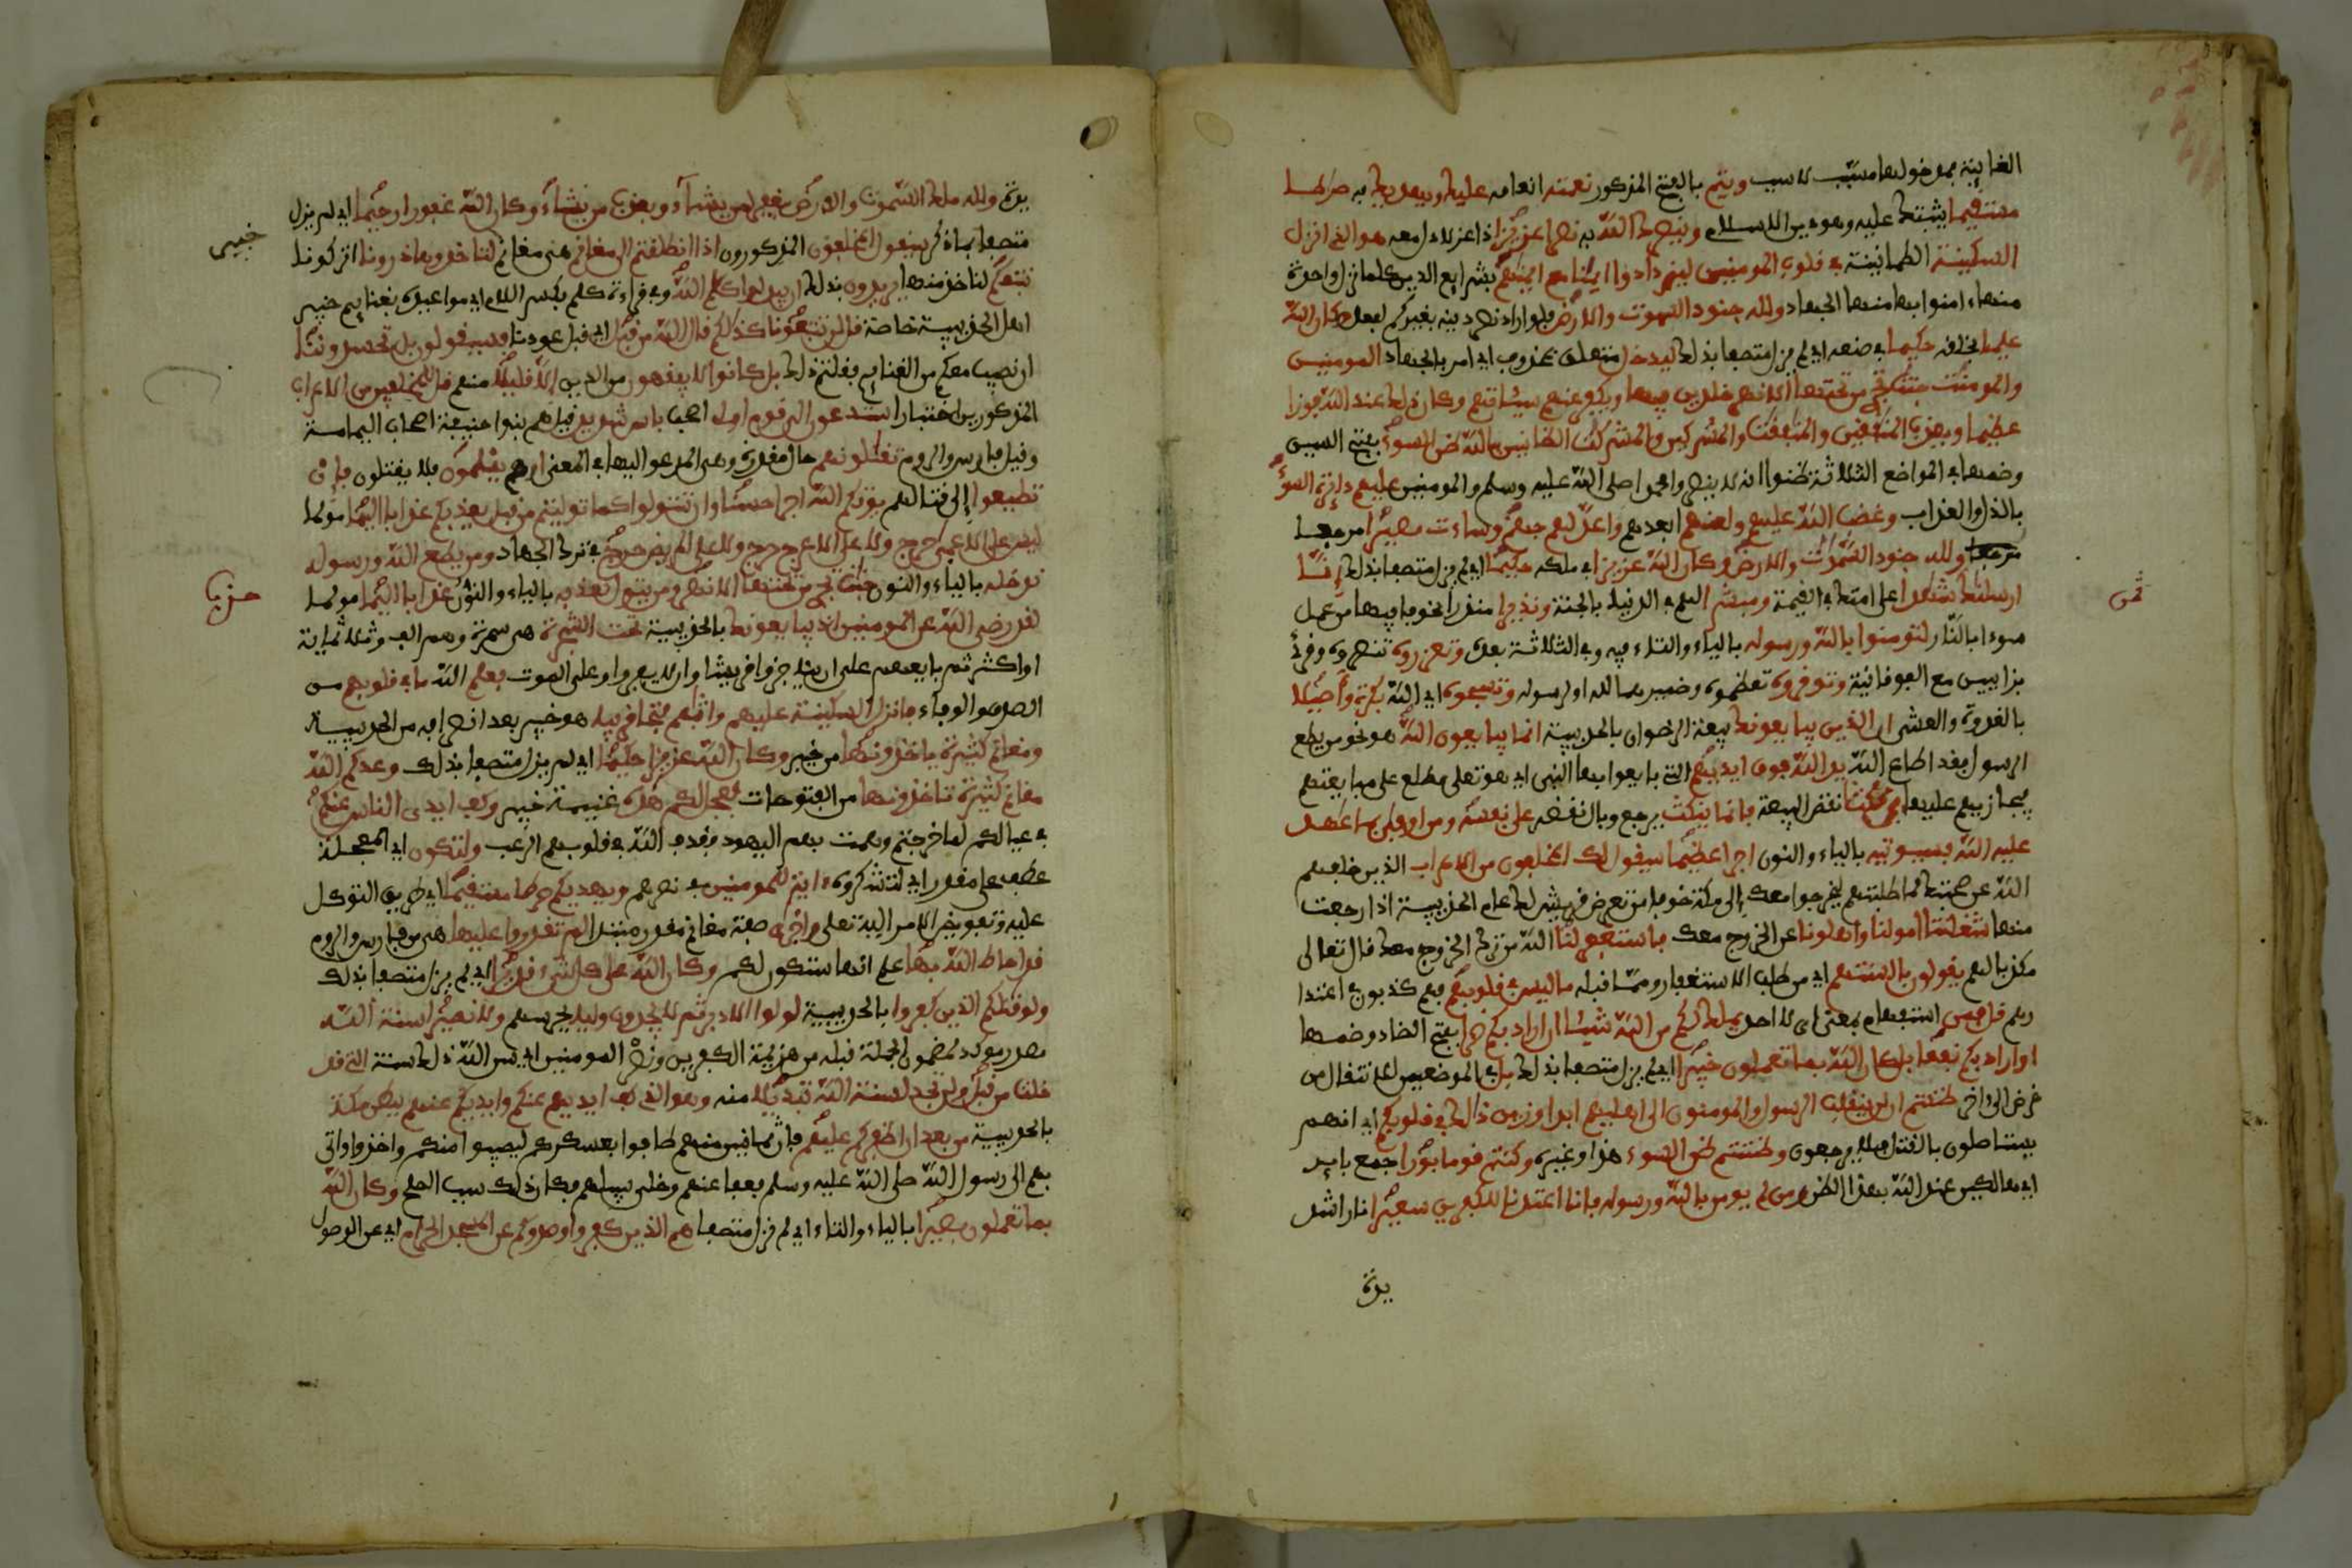 الغايية فمدخولها مسبب لا سبب ويتم بالفتح المذكور نعمته انعامه عليك ويهديك به صراطا
مستقيما يثبتك عليه وهو دين الاسلام وينصرك الله به نصرا عزيزا ذا عز لا ذل معه هو الذي انزل
السكينة الطمانينة في قلوب المومنين ليزدادوا ايمنا مع ايمنهم بشرايع الدين كلما نزل واحدة
منها ءامنوا بها منها الجهاد ولله جنود السموت والارض فلو اراد نصر دينه بغيركم لفعل وكان الله
عليما بخلقه حكيما في صنعه اي لم يزل متصفا بذلك ليدخل متعلق بمحذوف اي امر بالجهاد المومنين
والمومنت جنت تجري من تحتها الانهر خلدين فيها ويكفر عنهم سيئاتهم وكان ذلك عند الله فوزا
عظيما ويعذب المنفقين والمنفقت والمشركين والمشركت الظانين بالله ظن السوء بفتح السين
وضمها في المواضع الثلاثة ظنوا انه لا ينصر محمدا صلى الله عليه وسلم والمومنين عليهم دايرة السوء
بالذل والعذاب وغضب الله عليهم ولعنهم ابعدهم واعد لهم جهنم وساءت مصيرا مرجعا
ولله جنود السموت والارض وكان الله عزيزا في ملكه حكيما اي لم يزل متصفا بذلك إنا
ارسلنك شهدا على امتك في القيمة ومبشرا لهم في الدنيا بالجنة ونذيرا منذرا مخوفا فيها من عمل
سوءا بالنار لتومنوا بالله ورسوله بالياء والتاء فيه وفي الثلاثة بعده وتعزروه تنصروه وقرئ
بزايين مع الفوقانية وتوقروه تعظموه وضميرهما لله او لرسوله وتسبحوه اي الله بكرة وأصيلا
بالغدوة والعشي ان الذين يبايعونك بيعة الرضوان بالحديبية انما يبايعون الله هو نحو من يطع
الرسول فقد اطاع الله يد الله فوق ايديهم التي بايعوا بها النبي اي هو تعلى مطلع على مبايعتهم
فيجازيهم عليها فمن نكث نقض البيعة فانما ينكث يرجع وبال نقضه على نفسه ومن اوفى بما عهد
عليه الله فسيوتيه بالياء والنون اجرا عظيما سيقول لك المخلفون من الاعراب الذين خلفهم
الله عن صحبتك لما طلبتهم ليخرجوا معك إلى مكة خوفا من تعرض قريش لك عام الحديبية اذا رجعت
منها شغلتنا امولنا واهلونا عن الخروج معك فاستغفر لنا الله من ترك الخروج معك قال تعالى
مكذبا لهم يقولون بالسنتهم اي من طلب الاستغفار ومما قبله ما ليس في قلوبهم فهم كذبون في اعتذا
رهم قل فمن استفهام بمعنى اي لا احد يملك لكم من الله شيئا ان اراد بكم ضرا بفتح الضاد وضمها
او اراد بكم نفعا بل كان الله بما تعملون خبيرا اي لم يزل متصفا بذلك بل في الموضعين للانتقال من
غرض الى ءاخر ظننتم ان لن ينقلب الرسول والمومنون الى اهليهم ابدا وزين ذالك في قلوبكم اي انهم
يستاصلون بالقتل فلا يرجعون وظننتم ظن السوء هذا وغيره وكنتم قوما بورا جمع باير
اي هالكين عند الله بهذا الظن ومن لم يومن بالله ورسوله فانا اعتدنا للكفرين سعيرا نارا شد
يدة
ثمن
يدة ولله ملك السموت والارض يغفر لمن يشاء ويعذب من يشاء وكان الله غفورا رحيما اي لم يزل
متصفا بما ذكر سيقول المخلفون المذكورون اذا انطلقتم الى مغانم هي مغانم لتاخذوها ذرونا اتركونا
نتبعكم لناخذ منها يريدون بذلك ان يبدلوا كلم الله وفي قراءة كلم بكسر اللام اي مواعيده بغنايم خيبر
اهل الحديبية خاصة قل لن تتبعونا كذلكم قال الله من قبل اي قبل عودنا فسيقولون بل تحسدوننا
ان نصيب معكم من الغنايم فقلتم ذلك بل كانوا لا يفقهون من الدين إلا قليلا منهم قل للمخلفين من الاعراب
المذكورين اختبارا ستدعون الى قوم اولي اصحاب باس شديد قيل هم بنوا حنيفة اصحاب اليمامة
وقيل فارس والروم تقتلونهم حال مقدرة وهي المدعو اليها في المعنى او هم يسلمون فلا يقتلون فإن
تطيعوا إلى قتالهم يوتكم الله اجرا حسنا وان تتولوا كما توليتم من قبل يعذبكم عذابا اليما مولما
ليس على الاعمى حرج ولا على الاعرج حرج ولا على المريض حرج في ترك الجهاد ومن يطع الله ورسوله
ندخله بالياء والنون جنت تجري من تحتها الانهر ومن يتول نعذبه بالياء والنون عذابا اليما مولما
لقد رضي الله عن المومنين اذ يبايعونك بالحديبية تحت الشجرة هي سمرة وهم الف وثلاثماية
او اكثر ثم بايعهم على ان يناجزوا قريشا وان لا يفروا وعلى الموت فعلم الله ما في قلوبهم من
الصدق والوفاء فانزل السكينة عليهم واثبهم فتحا قريبا هو خيبر بعد انصرافهم من الحديبية
ومغانم كثيرة ياخذونها من خيبر وكان الله عزيزا حكيما اي لم يزل متصفا بذلك وعدكم الله
مغانم كثيرة تاخذونها من الفتوحات فعجل لكم هذه غنيمة خيبر وكف ايدي الناس عنكم
في عيالكم لما خرجتم وهمت بهم اليهود فقذف الله في قلوبهم الرعب ولتكون اي المعجلة
عطف على مقدر اي لتشكروه ءاية للمومنين في نصرهم ويهديكم صراطا مستقيما اي طريق التوكل
عليه وتفويض الامر اليه تعلى واخرى صفة مغانم مقدرة مبتدا لم تقدروا عليها هي من فارس والروم
قد احاط الله بها علم انها ستكون لكم وكان الله على كل شيء قديرا اي لم يزل متصفا بذلك
ولو قتلكم الذين كفروا بالحديبية لولوا الادبر ثم لا يجدون وليا يحرسهم ولا نصيرا سنة الله
مصدر موكد لمضمون الجملة قبله من هزيمة الكفرين ونصر المومنين اي سن الله ذلك سنة التي قد
خلت من قبل ولن تجد لسنة الله تبديلا منه وهو الذي كف ايديهم عنكم وايديكم عنهم ببطن مكة
بالحديبية من بعد ان اظفركم عليهم فان ثمانين منهم طافوا بعسكركم ليصيبوا منكم واخذوا واتى
بهم الى رسول الله صلى الله عليه وسلم فعفا عنهم وخلى سبيلهم فكان ذلك سبب الصلح وكان الله
بما تعملون بصيرا بالياء والتاء اي لم يزل متصفا هم الذين كفروا وصدوكم عن المسجد الحرام اي عن الوصول
خيبر
حزب